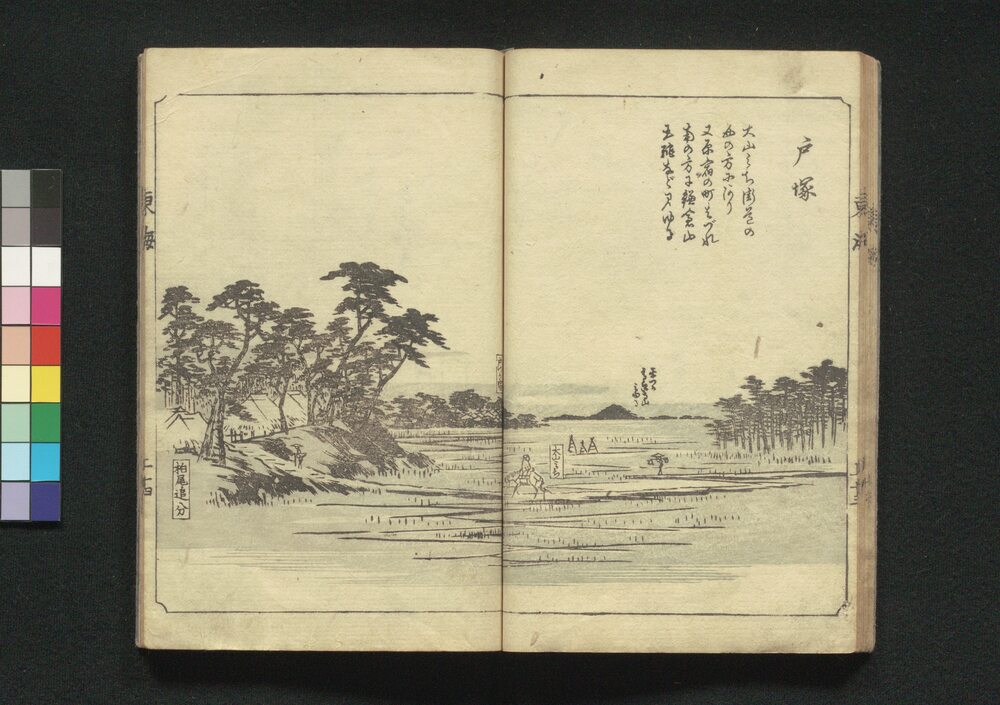 戸塚
大山みち街道の
西の方にあり
又原宿の町はづれ
南の方に鎌倉山
玉縄など見ゆる
大山みち
柏尾追分
東海
二十四
東海